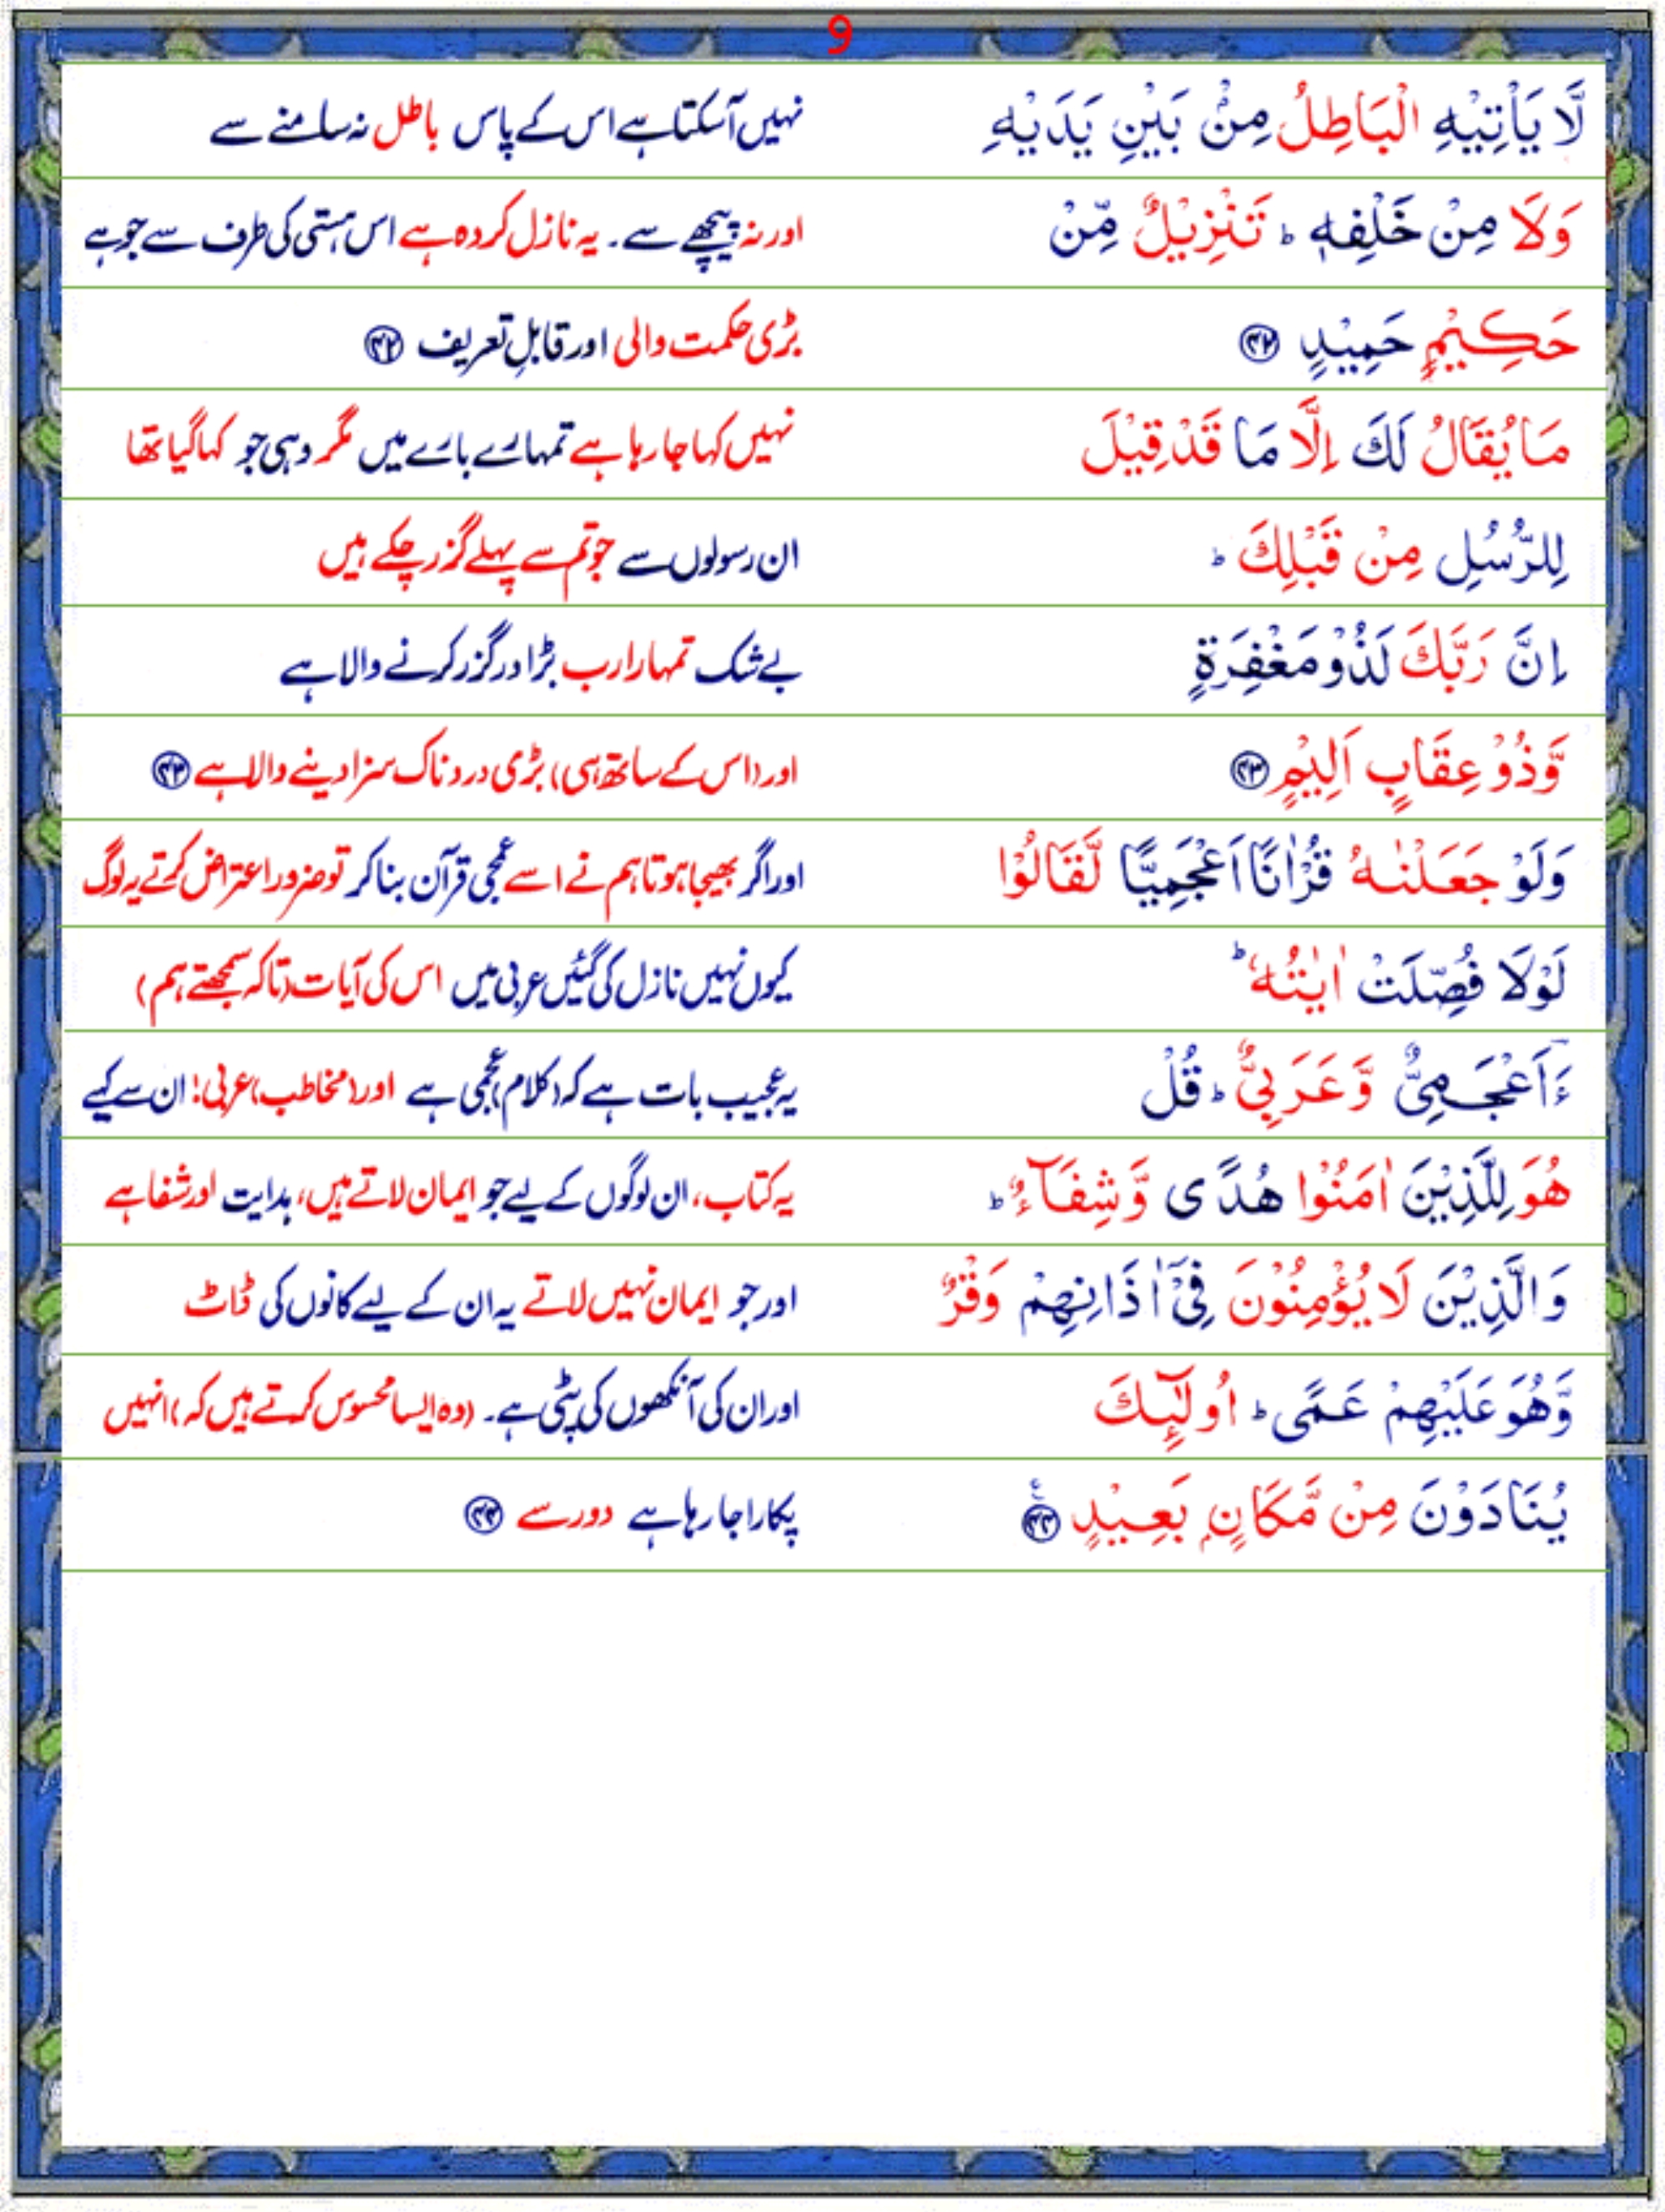 9
لَّا يَاْتِيْهِ الْبَاطِلُ مِنْۢ بَيْنِ يَدَيْهِ نہیں آسکتا ہے اس کے پاس باطل نہ سامنے سے
وَلَا مِنْ خَلْفِهٖ ؕ تَنْزِيْلٌ مِّنْ اور نہ پیچھے سے۔ یہ نازل کردہ ہے اس ہستی کی طرف سے جو ہے
حَكِيْمٍ حَمِيْدٍ ۴۲ بڑی حکمت والی اور قابلِ تعریف ۴۲
مَا يُقَالُ لَكَ اِلَّا مَا قَدْ قِيْلَ نہیں کہا جارہا ہے تمہارے بارے میں مگر وہی جو کہا گیا تھا
لِلرُّسُلِ مِنْ قَبْلِكَ ؕ ان رسولوں سے جو تم سے پہلے گزر چکے ہیں
اِنَّ رَبَّكَ لَذُوْ مَغْفِرَةٍ بے شک تمہارا رب بڑا درگزر کرنے والا ہے
وَّذُوْ عِقَابٍ اَلِيْمٍ ۴۳ اور (اس کے ساتھ ہی) بڑی دردناک سزا دینے والا ہے ۴۳
وَلَوْ جَعَلْنٰهُ قُرْاٰنًا اَعْجَمِيًّا لَّقَالُوْا اور اگر بھیجا ہوتا ہم نے اسے عجمی قرآن بنا کر تو ضرور اعتراض کرتے یہ لوگ
لَوْلَا فُصِّلَتْ اٰيٰتُهٗ ؕ کیوں نہیں نازل کی گئیں عربی میں اس کی آیات (تاکہ سمجھتے ہم)
ءَاَعْجَمِىٌّ وَّعَرَبِىٌّ ؕ قُلْ یہ عجیب بات ہے کہ (کلام) عجمی ہے اور (مخاطب) عربی! ان سے کہیے
هُوَ لِلَّذِيْنَ اٰمَنُوْا هُدًى وَّشِفَآءٌ ؕ یہ کتاب، ان لوگوں کے لیے جو ایمان لاتے ہیں، ہدایت اور شفا ہے
وَالَّذِيْنَ لَا يُؤْمِنُوْنَ فِىْۤ اٰذَانِهِمْ وَقْرٌ اور جو ایمان نہیں لاتے یہ ان کے لیے کانوں کی ڈاٹ
وَّهُوَ عَلَيْهِمْ عَمًى ؕ اُولٰٓئِكَ اور ان کی آنکھوں کی پٹی ہے۔ (وہ ایسا محسوس کرتے ہیں کہ) انہیں
يُنَادَوْنَ مِنْ مَّكَانٍۭ بَعِيْدٍ ۴۴ پکارا جارہا ہے دور سے ۴۴